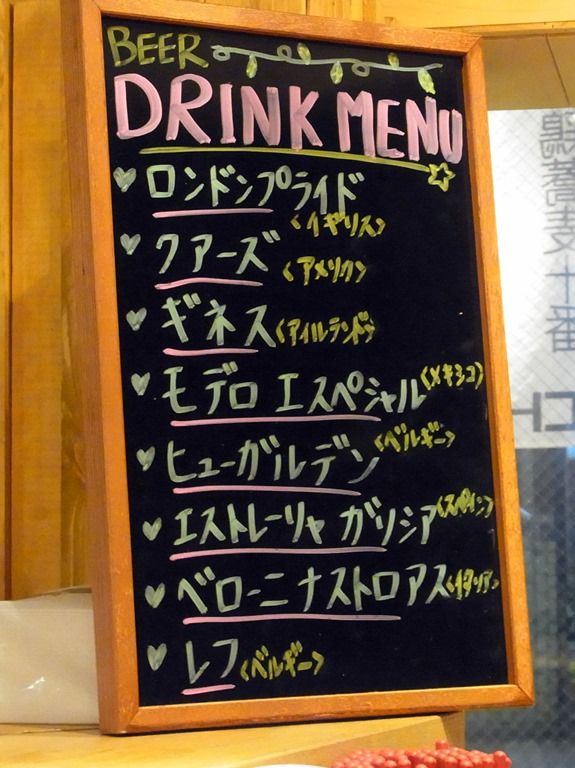 BEER
DRINK MENU
ロンドンプライド
<イギリス>
クアーズ
<アメリカ>
ギネス
<アイルランド>
モデロ エスペシャル
<メキシコ>
ヒューガルデン
<ベルギー>
エストレーリャ ガリシア
<スペイン>
ベローニナストロアス
<イタリア>
レフ
<ベルギー>
蕎麦十番